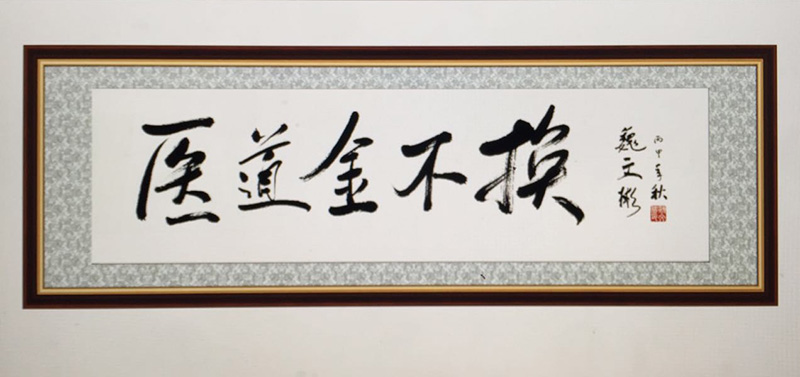 医道金不换
丙申年秋
魏文彬